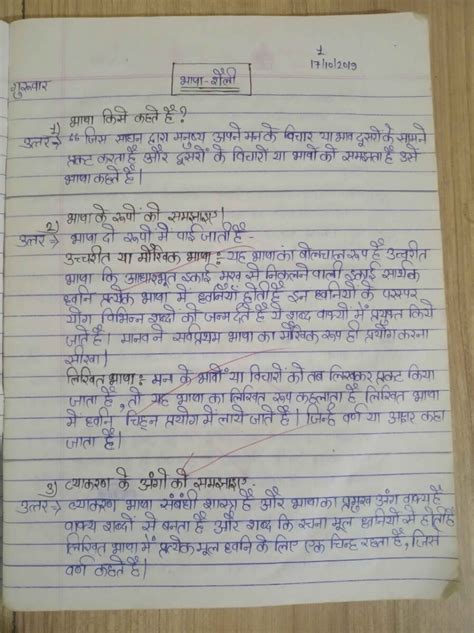 1
17/10/2019
गुरूवार
भाषा-शैली
1) भाषा किसे कहते है?
उत्तर→ "जिस साधन द्वारा मनुष्य अपने मन के विचार या भाव दूसरो के सामने
प्रकट करता है और दूसरों के विचारो या भावो को समझता है उसे
भाषा कहते है।
2) भाषा के रूपो को समझाइए।
उत्तर→ भाषा दो रूपो में पाई जाती है-
उच्चरीत या मौखिक भाषा: यह भाषा का बोलचाल रूप है उच्चरीत
भाषा कि आधारभूत इकाई मुख से निकलने वाली इकाई सार्थक
ध्वनि प्रत्येक भाषा में ध्वनियाँ होती है इन ध्वनियो के परस्पर
योग विभिन्न शब्दो को जन्म देते है ये शब्द वाक्यो में प्रयुक्त किये
जाते है। मानव ने सर्वप्रथम भाषा का मौखिक रूप ही प्रयोग करना
सीखा।
लिखित भाषा: मन के भावों या विचारो को जब लिखकर प्रकट किया
जाता है, तो यह भाषा का लिखित रूप कहलाता है लिखित भाषा
में ध्वनि चिह्न प्रयोग में लाये जाते है। जिन्हे वर्ण या अक्षर कहा
जाता है।
3) व्याकरण के अंगो को समझाइए-
उत्तर→ व्याकरण भाषा संबंधी शास्त्र है और भाषा का प्रमुख अंग वाक्य है
वाक्य शब्दो से बनता है और शब्द कि रचना मूल ध्वनियो से होती है
लिखित भाषा में प्रत्येक मूल ध्वनि के लिए एक चिन्ह रहता है, जिसे
वर्ण कहते है।